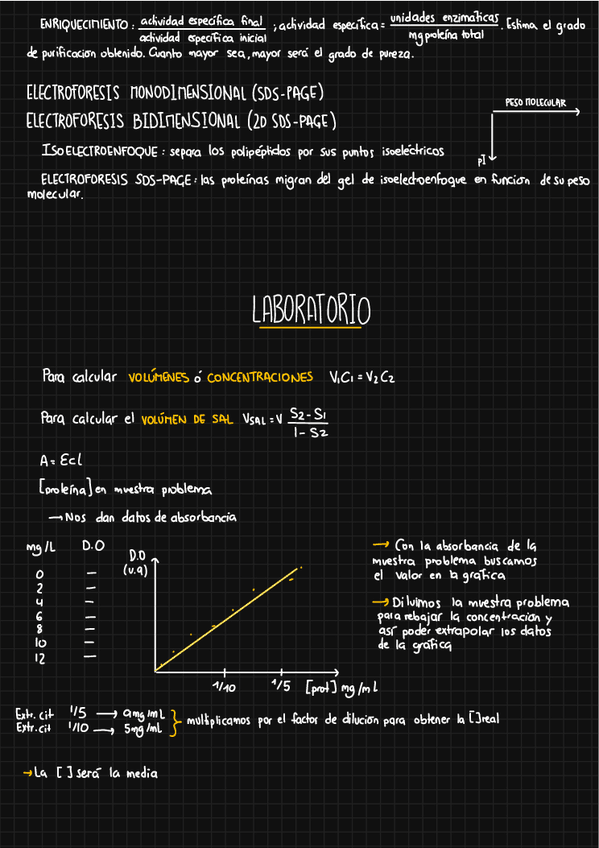 ENRIQUECIMIENTO: actividad específica final / actividad específica inicial ; actividad específica = unidades enzimáticas / mg proteína total . Estima el grado
de purificación obtenido. Cuanto mayor sea, mayor será el grado de pureza.
ELECTROFORESIS MONODIMENSIONAL (SDS-PAGE)
ELECTROFORESIS BIDIMENSIONAL (2D SDS-PAGE)
PESO MOLECULAR
pI
ISOELECTROENFOQUE: separa los polipéptidos por sus puntos isoeléctricos
ELECTROFORESIS SDS-PAGE: las proteínas migran del gel de isoelectroenfoque en función de su peso
molecular.
LABORATORIO
Para calcular VOLÚMENES ó CONCENTRACIONES V1C1 = V2C2
Para calcular el VOLÚMEN DE SAL VSAL = V S2-S1 / 1-S2
A = Ecl
[proteína] en muestra problema
→ Nos dan datos de absorbancia
mg/L D.O
0 —
2 —
4 —
6 —
8 —
10 —
12 —
D.O
(u.a)
1/10 1/5 [prot] mg/mL
→ Con la absorbancia de la
muestra problema buscamos
el valor en la gráfica
→ Diluimos la muestra problema
para rebajar la concentración y
así poder extrapolar los datos
de la gráfica
Extr. cit 1/5 → 9mg/mL
Extr. cit 1/10 → 5mg/mL
} multiplicamos por el factor de dilución para obtener la [ ] real
→ La [ ] será la media